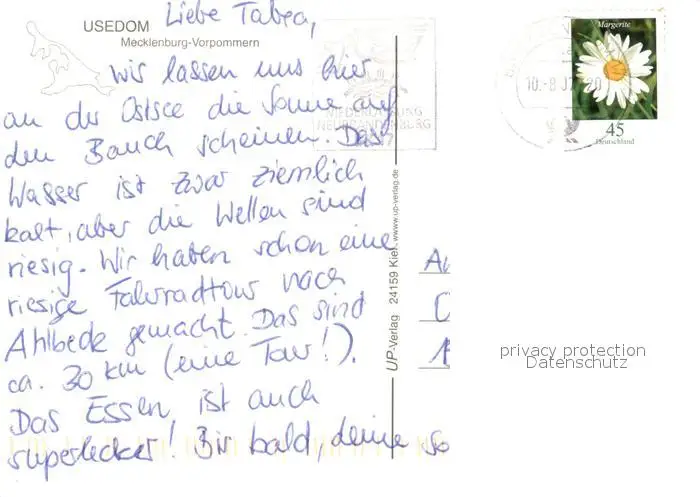 Liebe Tabea,
USEDOM
Mecklenburg-Vorpommern
wir lassen uns hier
an der Ostsee die Sonne auf
den Bauch scheinen. Das
Wasser ist zwar ziemlich
kalt, aber die Wellen sind
riesig. Wir haben schon eine
riesige Fahrradtour nach
Ahlbeck gemacht. Das sind
ca. 30 km (eine Tour!).
Das Essen ist auch
superlecker! Bis bald, deine
UP-Verlag 24159 Kiel · www.up-verlag.de
NEUBRANDENBURG
Margerite
45
Deutschland
privacy protection
Datenschutz